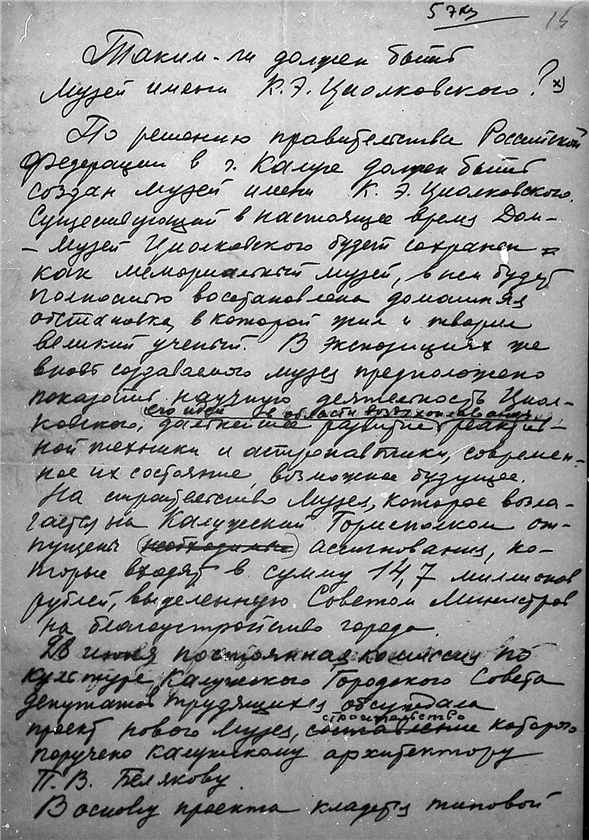 5 экз
15
Таким-ли должен быть
Музей имени К.Э.Циолковского? x)
По решению правительства Российской
Федерации в г. Калуге должен быть
создан музей имени К. Э. Циолковского.
Существующий в настоящее время Дом-
-Музей Циолковского будет сохранен
как мемориальный музей, в нем будет
полностью восстановлена домашняя
обстановка, в которой жил и творил
великий ученый. В экспозициях же
вновь создаваемого музея предположено
показать научную деятельность Циол-
его идеи в области воздухоплавания,
ковского, дальнейшее развитие реактив-
ной техники и астронавтики, современ-
ное их состояние, возможное будущее.
На строительство Музея, которое возла-
гается на Калужский Горисполком от-
пущены (необходимые) ассигнования, ко-
торые входят в сумму 14,7 миллионов
рублей, выделенную Советом Министров
на благоустройство города.
28 июня постоянная комиссия по
культуре Калужского Городского Совета
депутатов трудящихся обсуждала
строительство
проект нового Музея, составление которого
поручено калужскому архитектору
П. В. Белякову.
В основу проекта кладется типовой